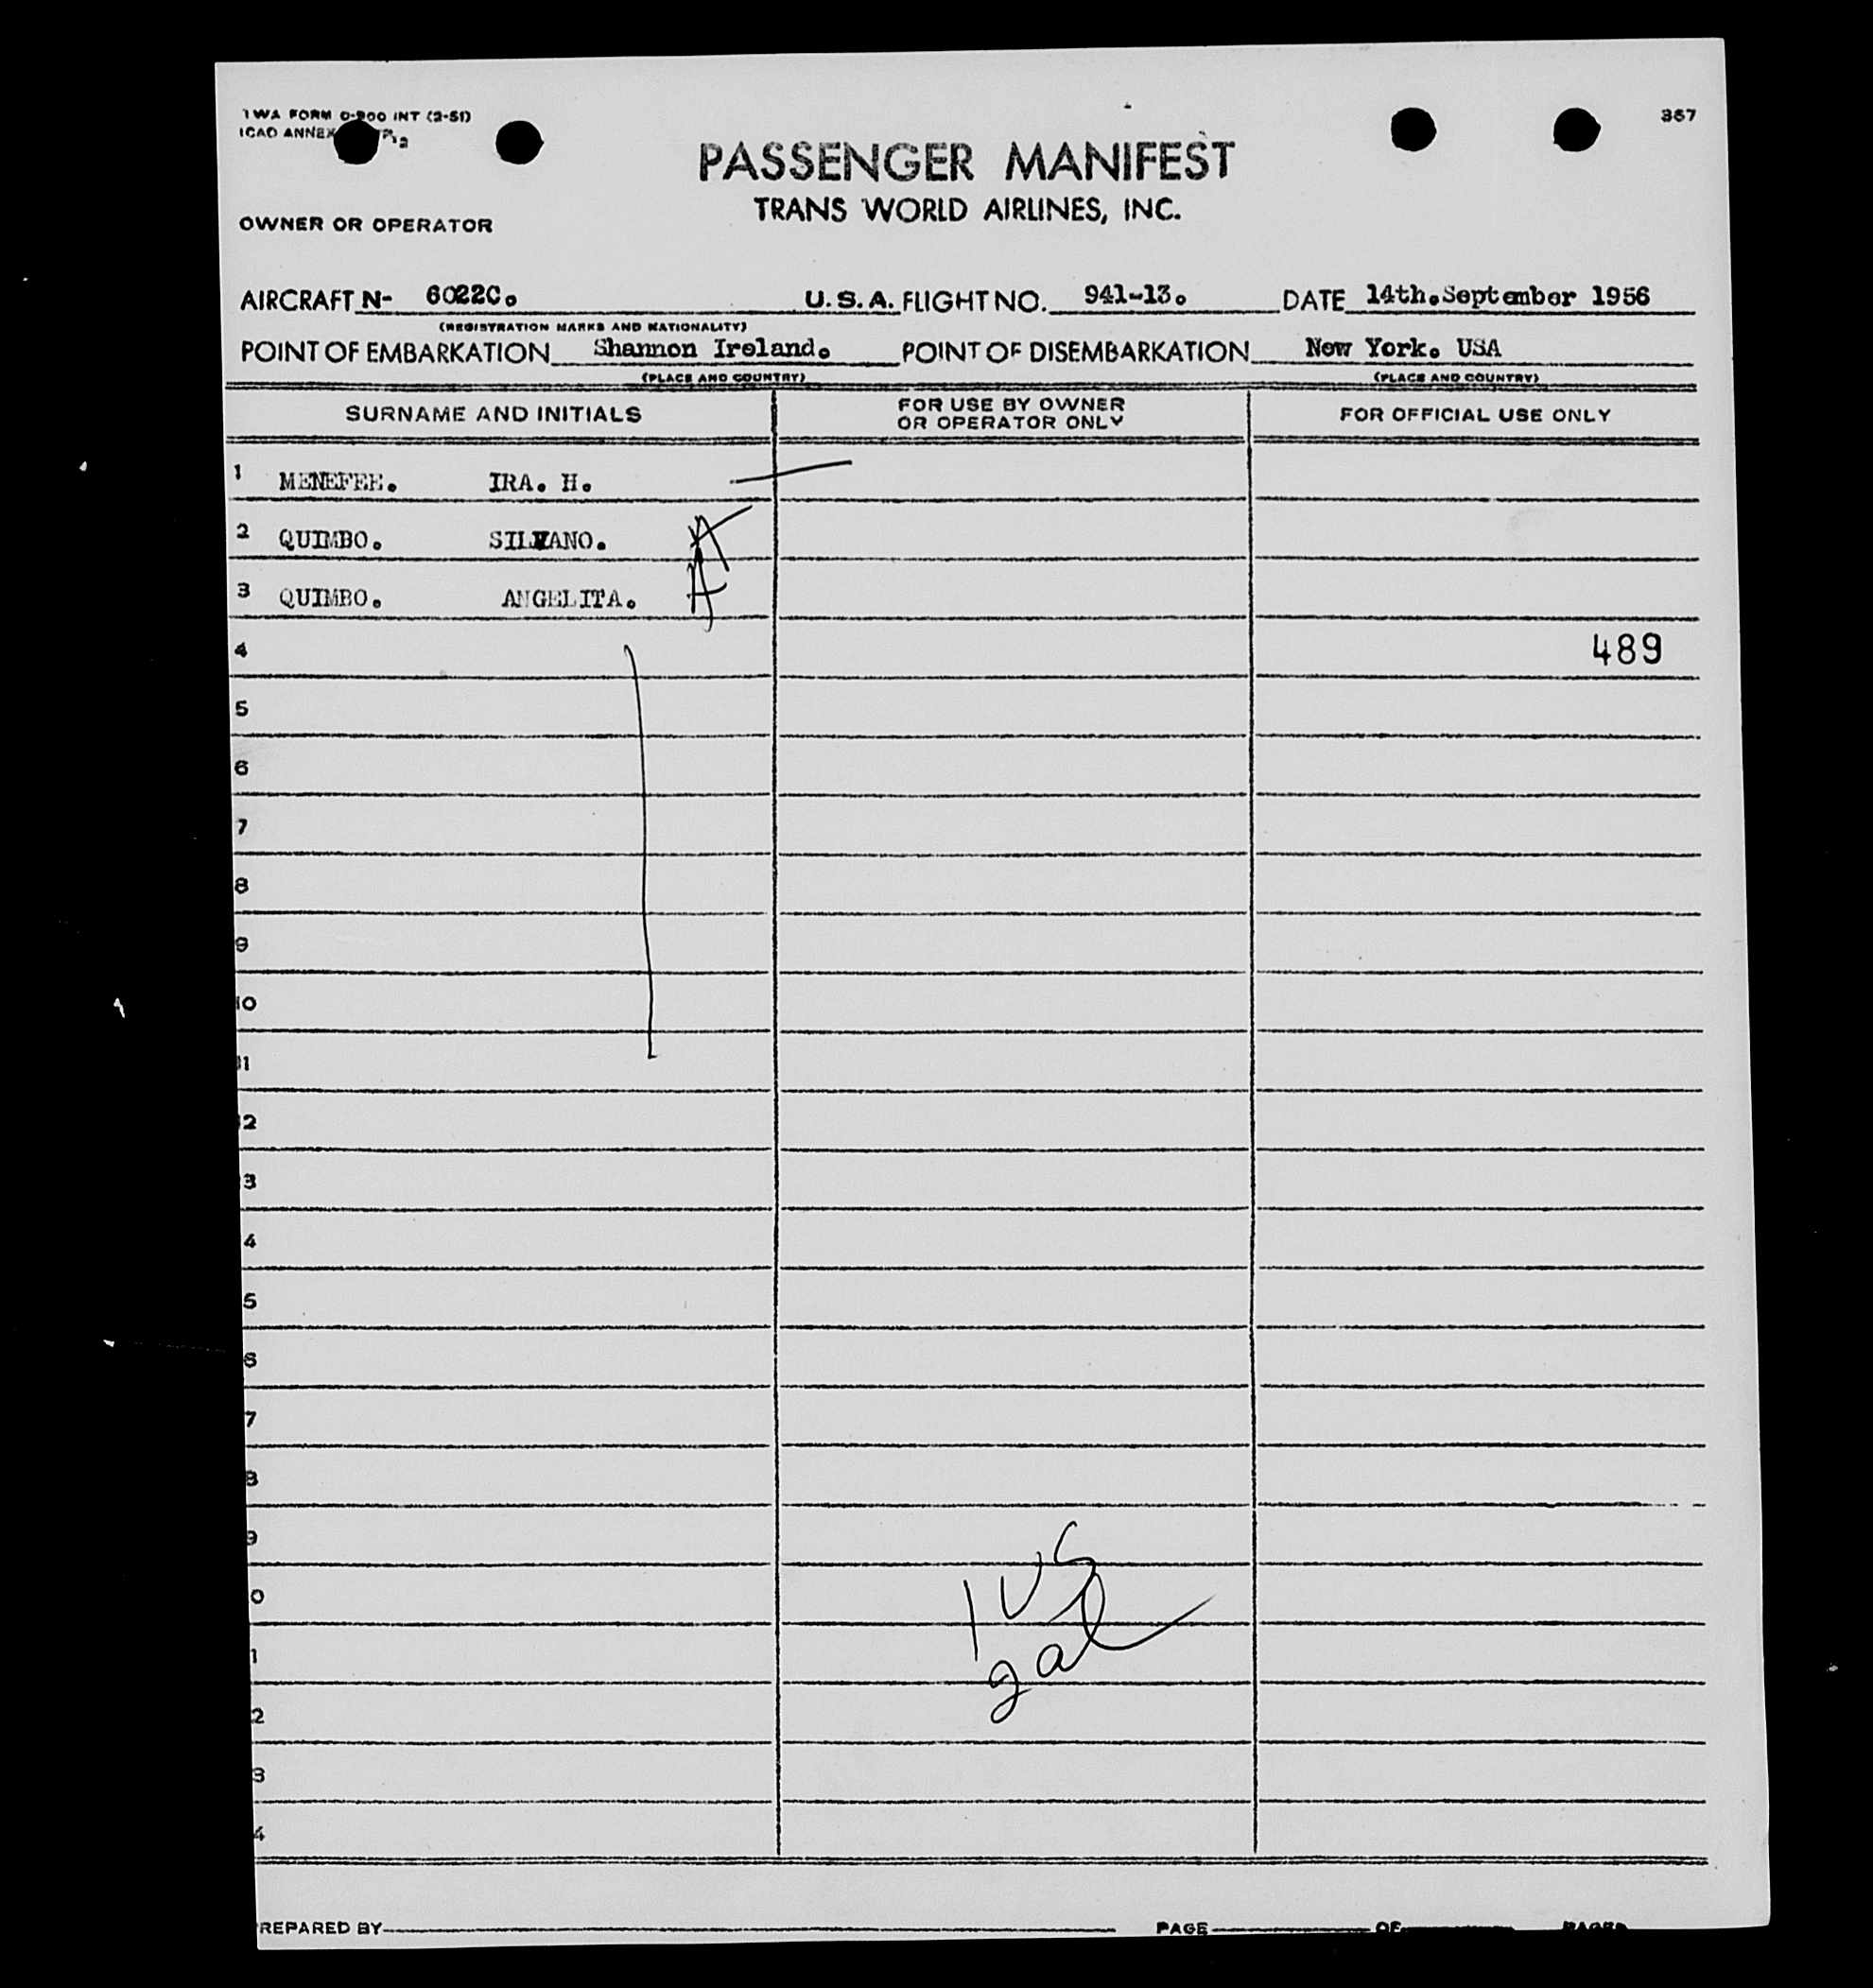 TWA FORM 0-900 INT (2-51)
ICAO ANNEX
367
PASSENGER MANIFEST
TRANS WORLD AIRLINES, INC.
OWNER OR OPERATOR
AIRCRAFT N- 6022C. U.S.A. FLIGHT NO. 941-13. DATE 14th.September 1956
(REGISTRATION MARKS AND NATIONALITY)
POINT OF EMBARKATION Shannon Ireland. POINT OF DISEMBARKATION New York. USA
(PLACE AND COUNTRY) (PLACE AND COUNTRY)
SURNAME AND INITIALS FOR USE BY OWNER OR OPERATOR ONLY FOR OFFICIAL USE ONLY
1 MENEFEE. IRA. H.
2 QUIMBO. SILVANO. A
3 QUIMBO. ANGELITA. A
4 489
5
6
7
8
9
10
11
12
3
4
5
6
7
8
9
0
1
2
3
4
1 US
2 al
REPARED BY PAGE OF PAGES